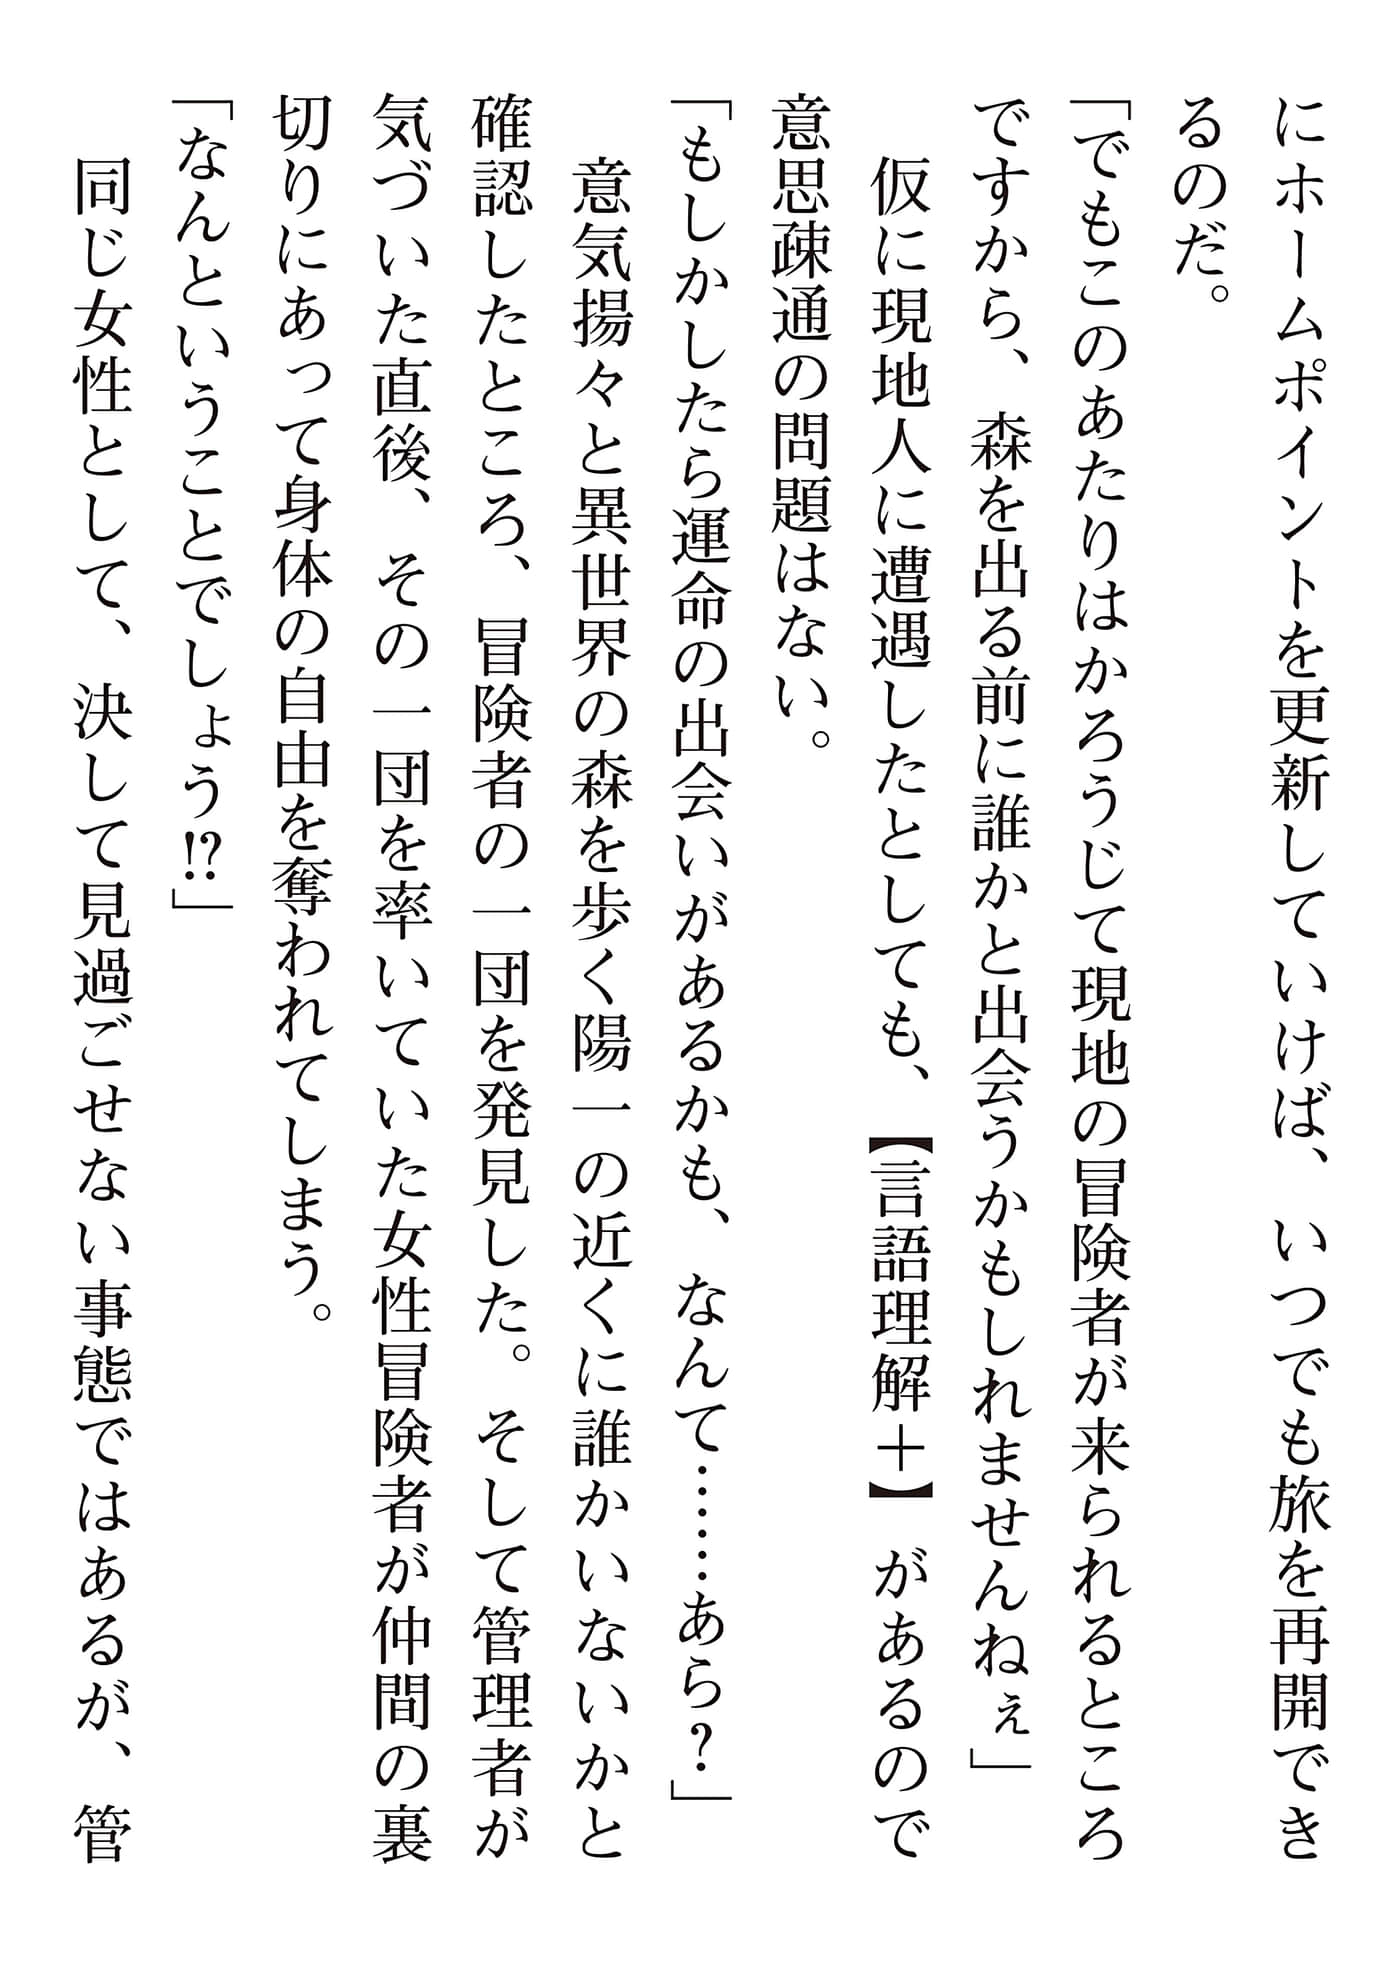 にホームポイントを更新していけば、いつでも旅を再開でき
るのだ。
「でもこのあたりはかろうじて現地の冒険者が来られるところ
ですから、森を出る前に誰かと出会うかもしれませんねぇ」
　仮に現地人に遭遇したとしても、【言語理解＋】があるので
意思疎通の問題はない。
「もしかしたら運命の出会いがあるかも、なんて……あら？」
　意気揚々と異世界の森を歩く陽一の近くに誰かいないかと
確認したところ、冒険者の一団を発見した。そして管理者が
気づいた直後、その一団を率いていた女性冒険者が仲間の裏
切りにあって身体の自由を奪われてしまう。
「なんということでしょう!?」
　同じ女性として、決して見過ごせない事態ではあるが、管